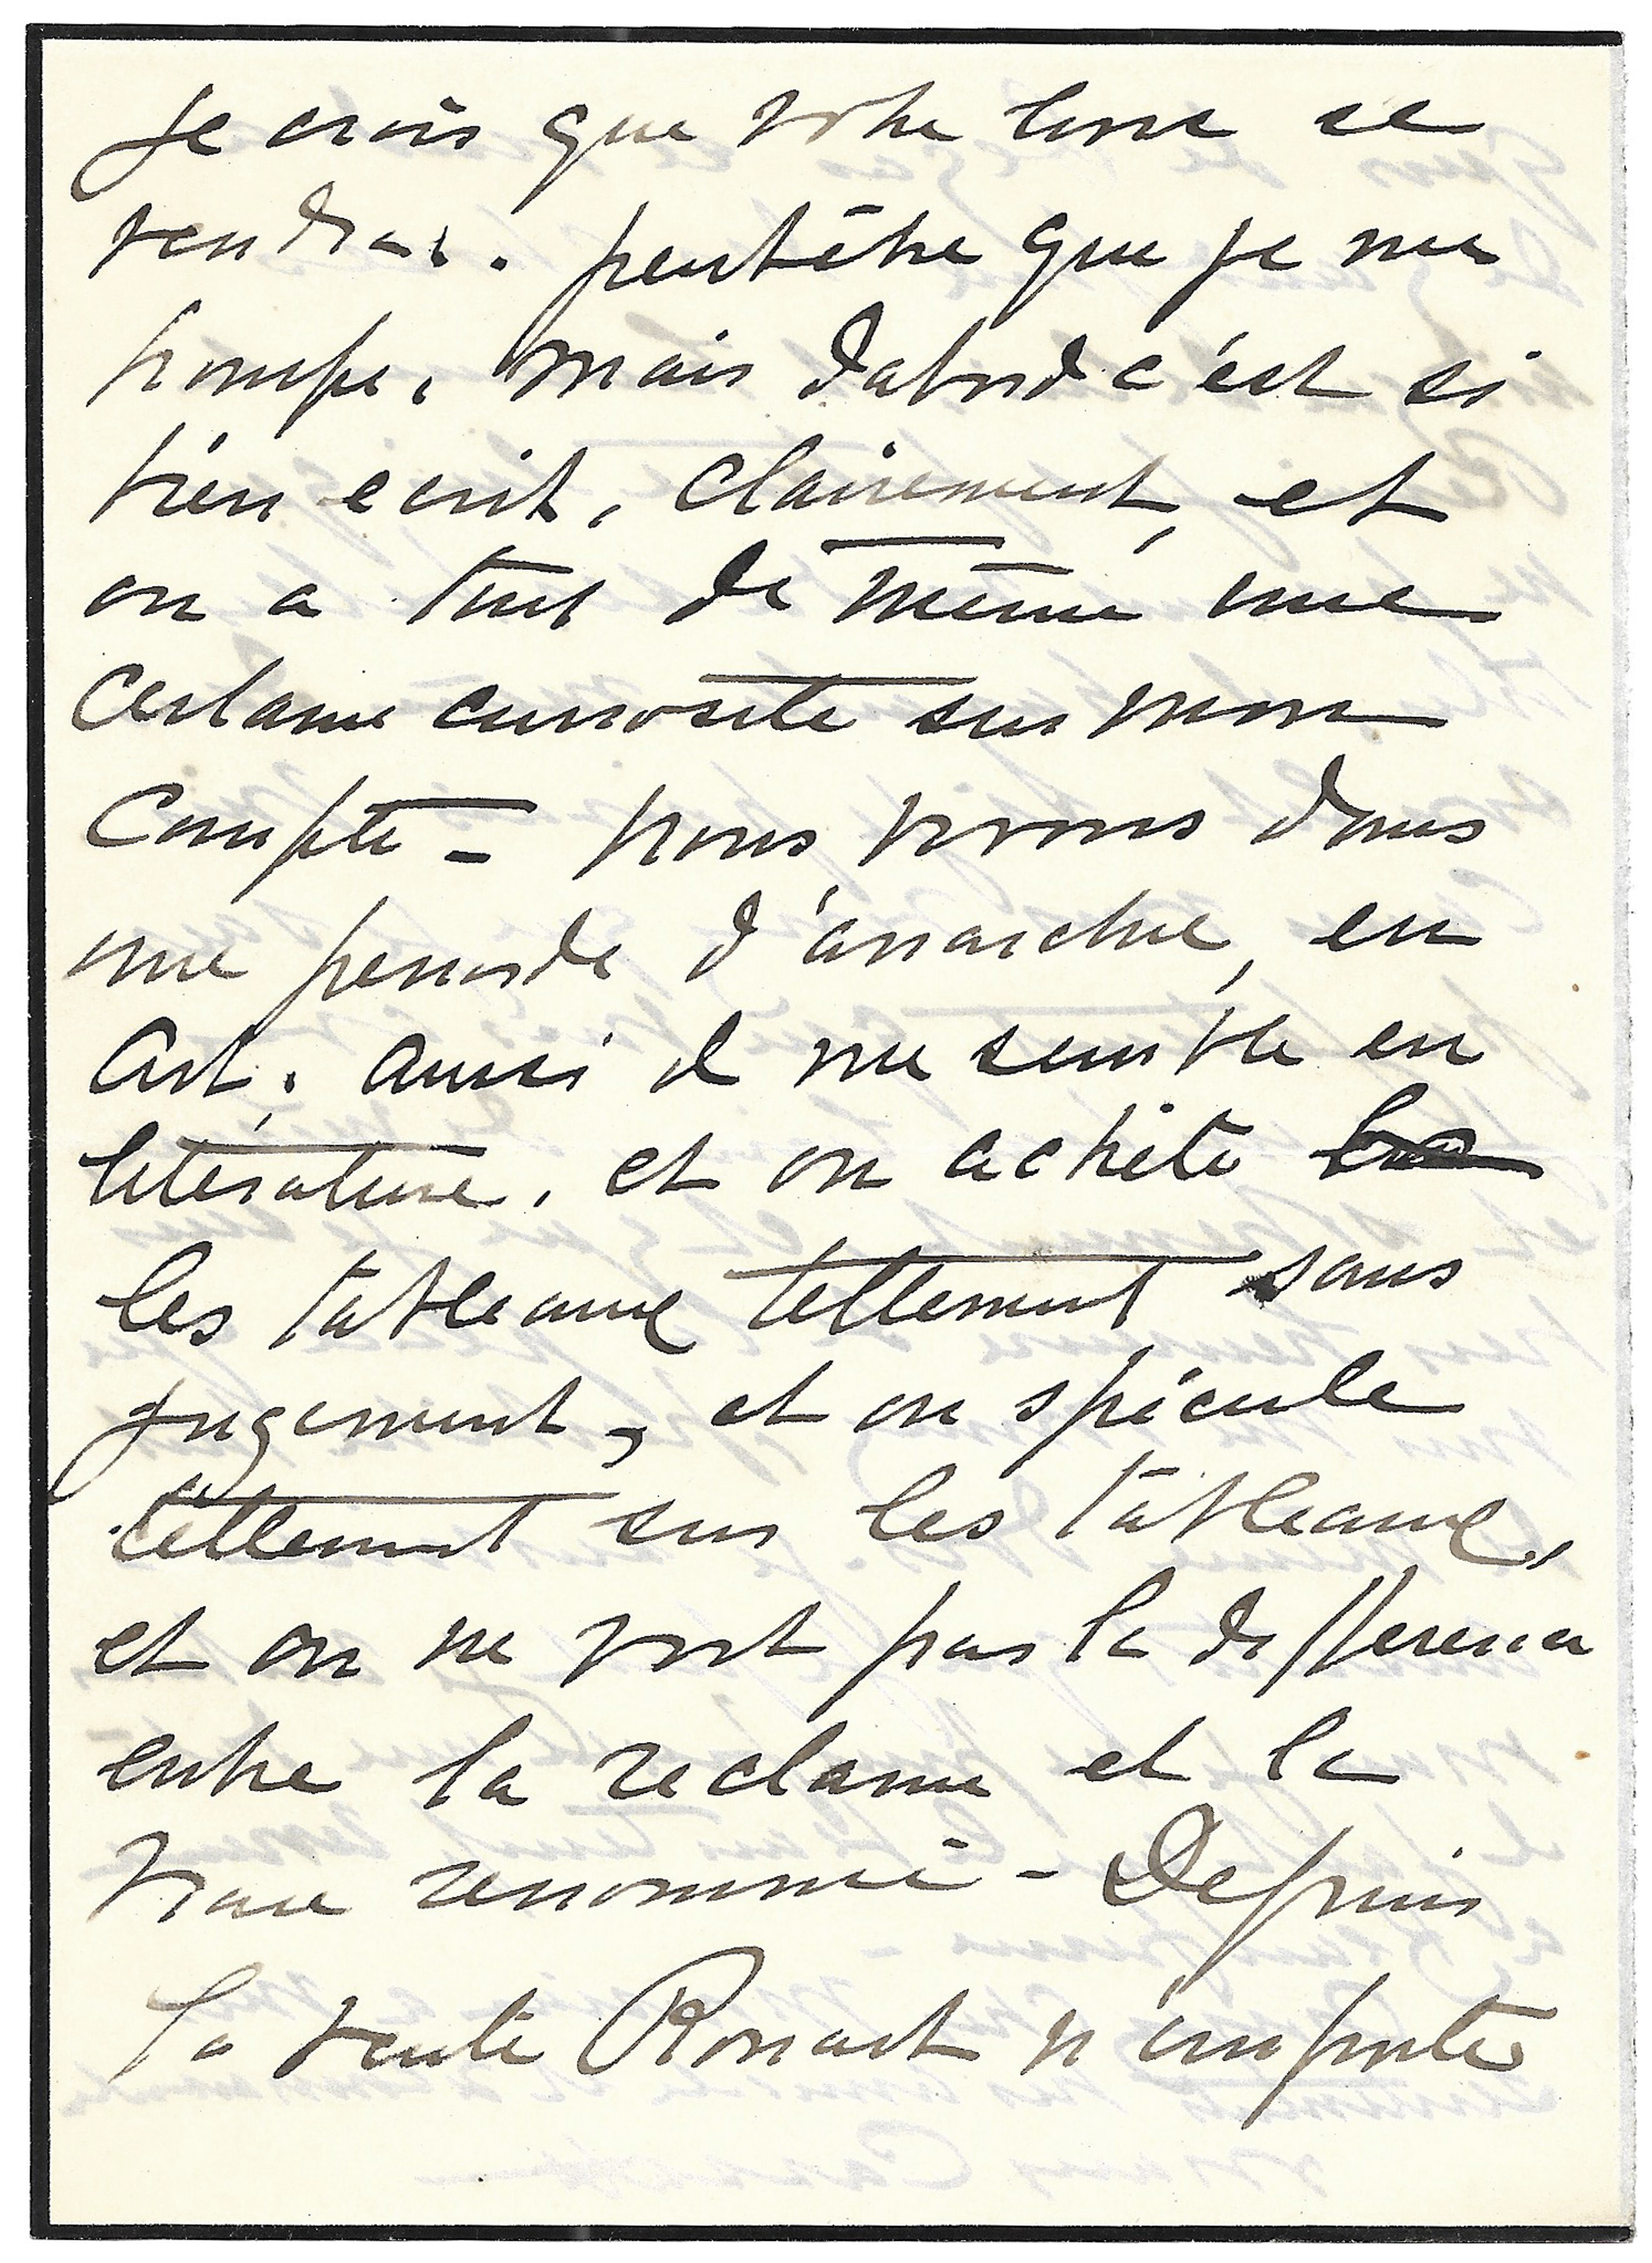 Je crois que votre livre se
vendra. peut être que je me
trompe. mais dabord c'est si
bien ecrit, clairement, et
on a tout de même une
certaine curiosité sur mon
compte - nous vivons dans
une periode d'anarchie, en
art. aussi il me semble en
literature. et on achète
les tableaux tellement sans
jugement, et on spécule
tellement sur les tableaux,
et on ne voit pas la difference
entre la reclame et la
vraie renommé - Depuis
la vente Rouart n'importe